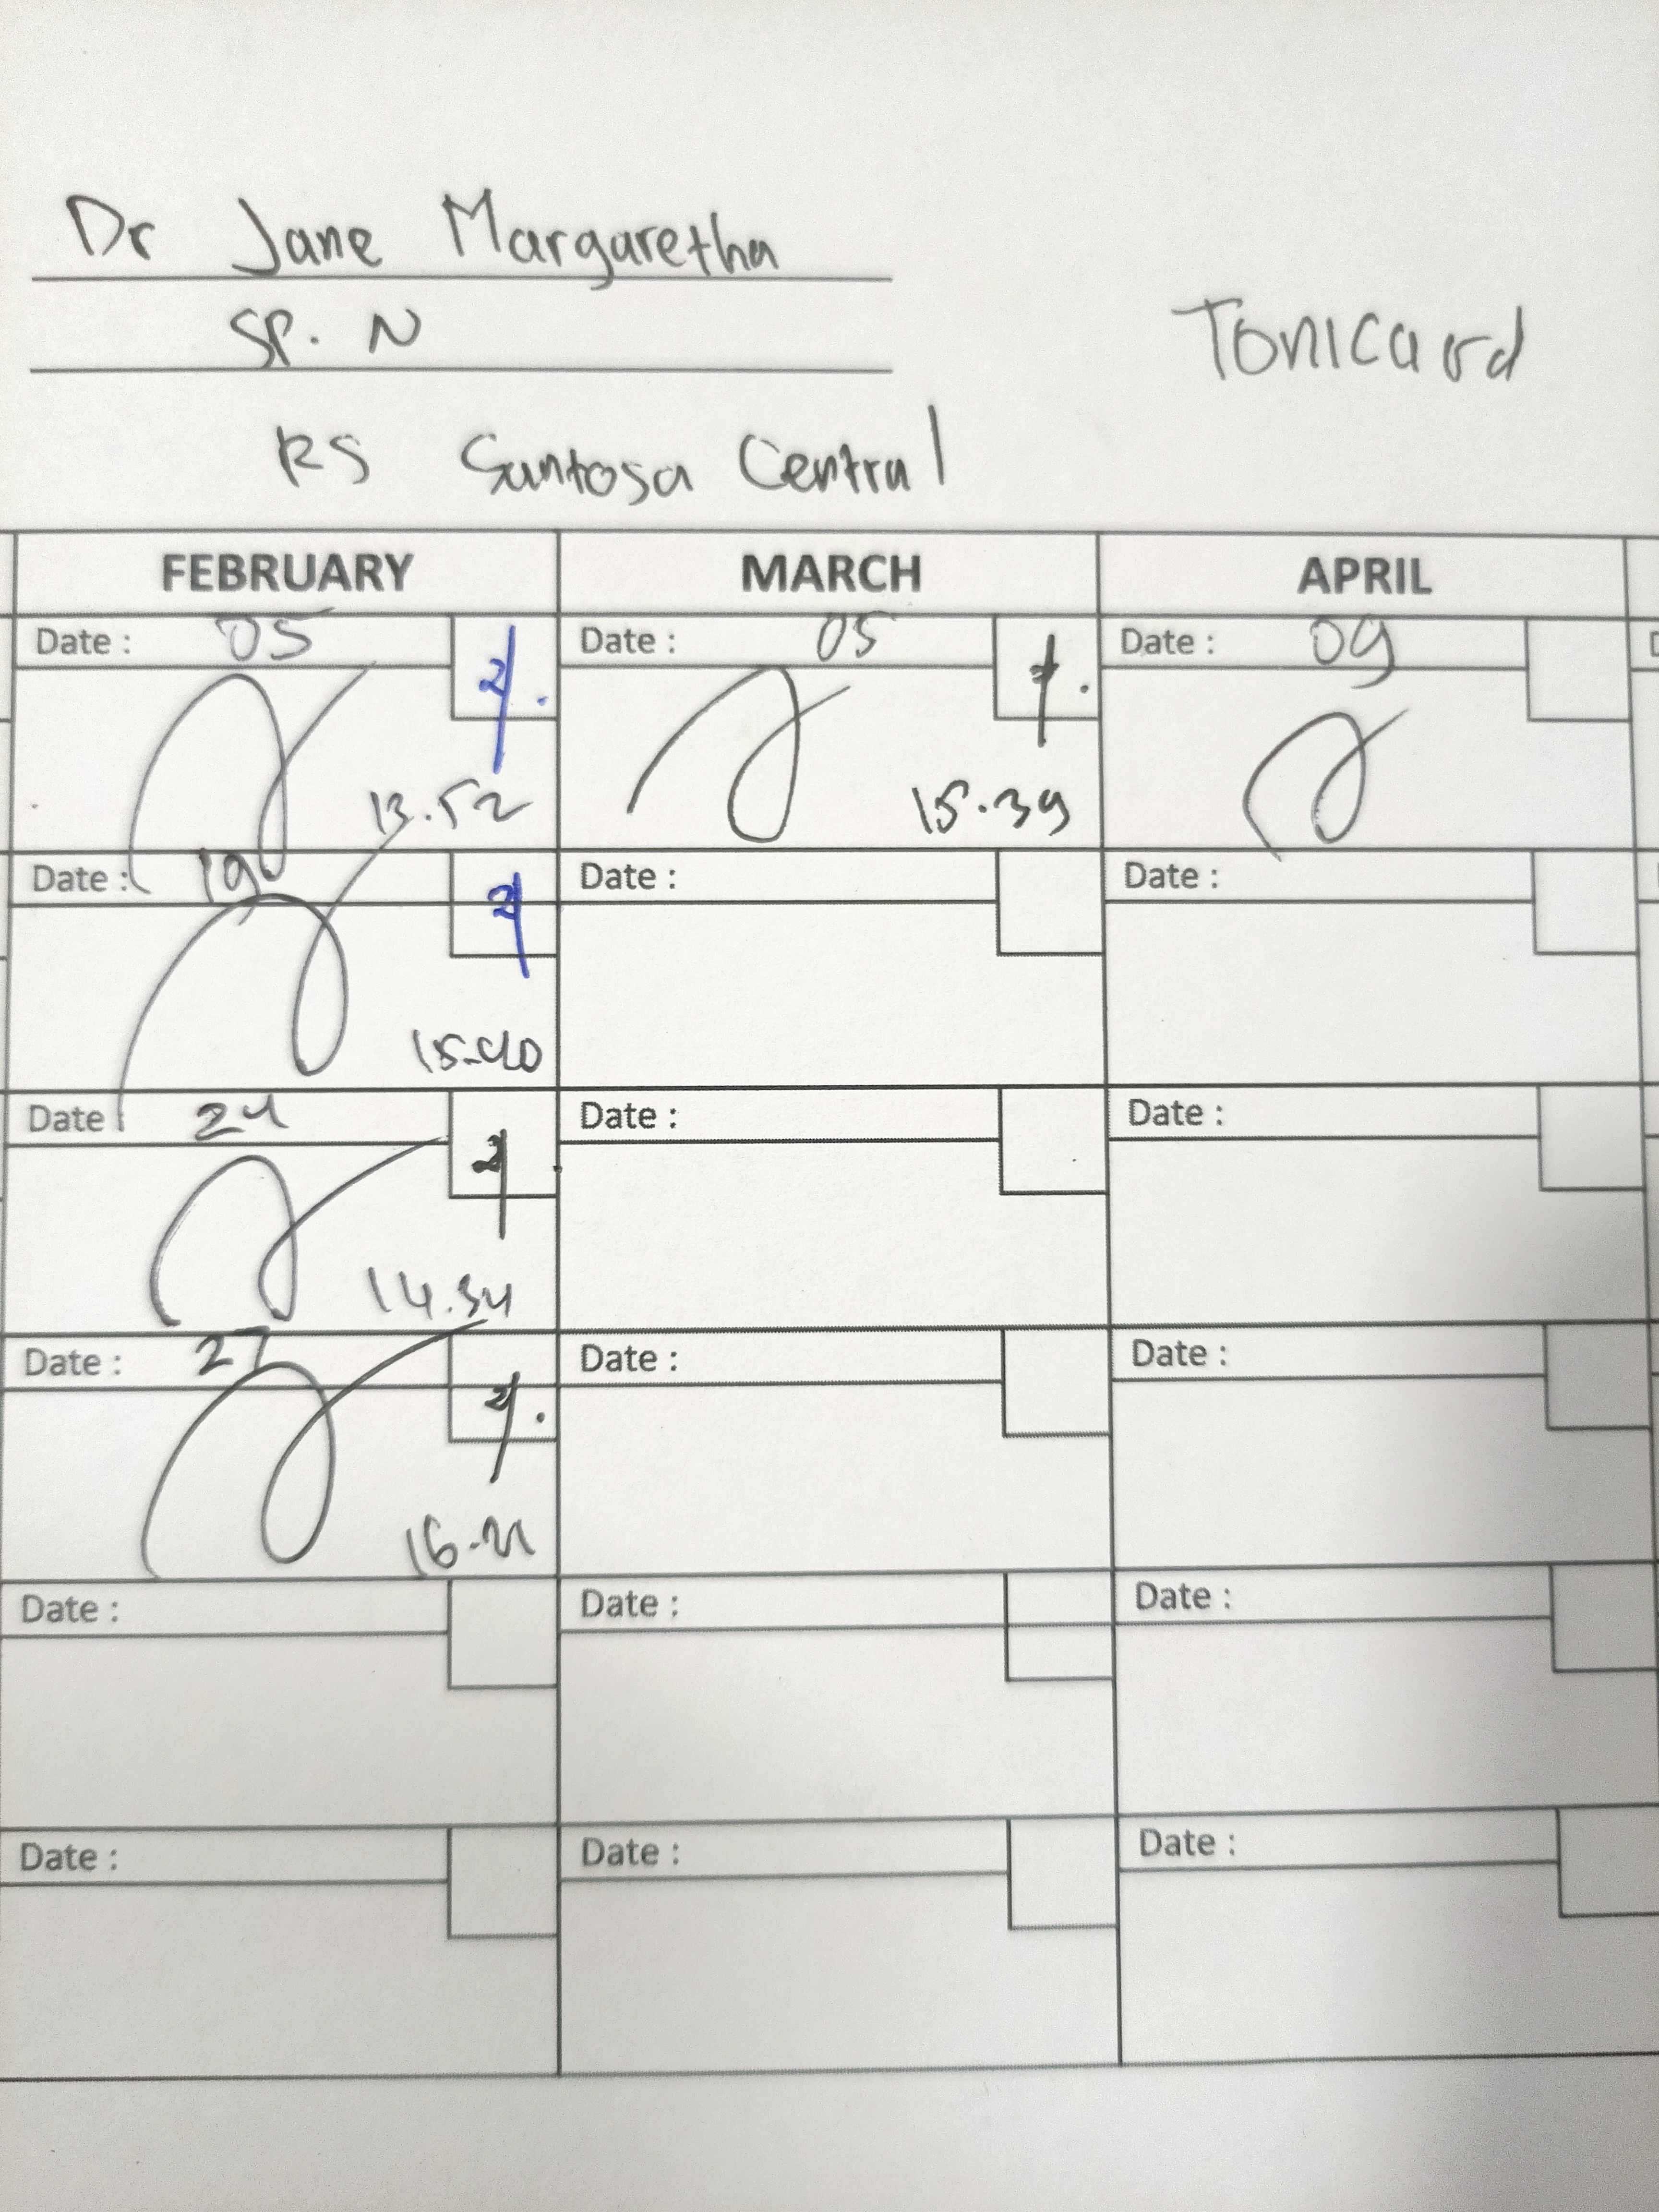 Dr Jane Margaretha
SP. N
Tonicard
RS Santosa Central
FEBRUARY MARCH APRIL
Date : 05 Date : 05 Date : 09
13.52 15.39
Date : 19 Date : Date :
15.40
Date : 24 Date : Date :
14.34
Date : 27 Date : Date :
16.21
Date : Date : Date :
Date : Date : Date :